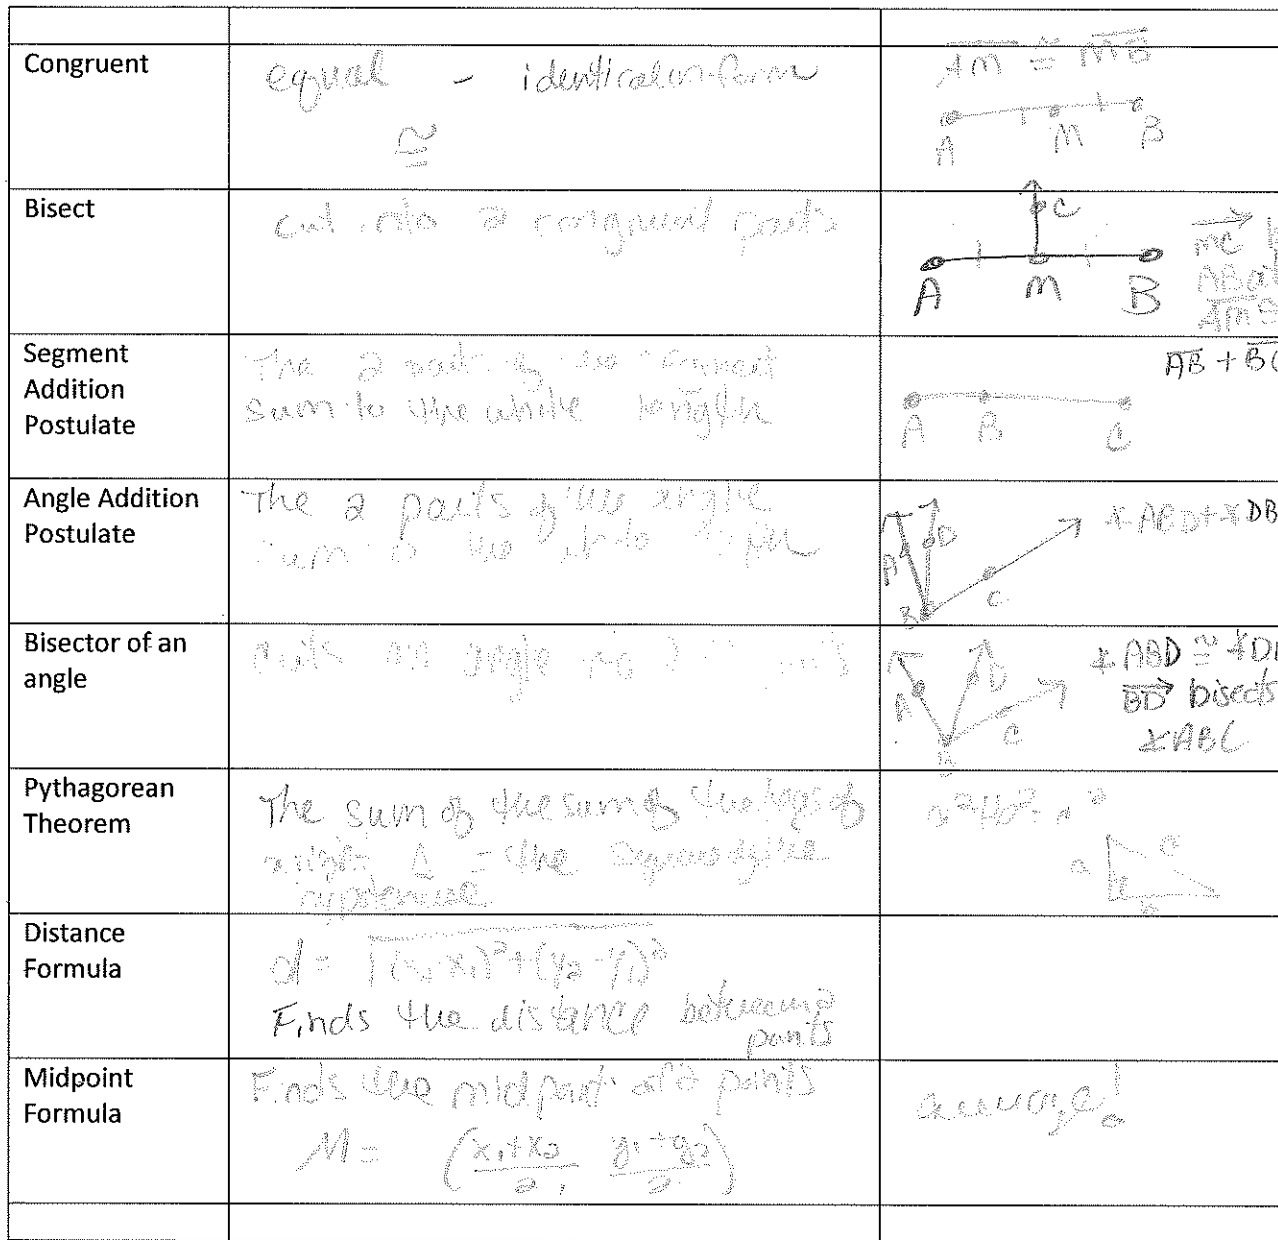 Congruent
equal - identical in form
≅
AM ≅ MB
A M B
Bisect
cut into 2 congruent parts
C
A M B
MC b
AB at
AM ≅
Segment
Addition
Postulate
The 2 connect
sum to the whole length
AB + BC
A B C
Angle Addition
Postulate
The 2 parts of the angle
sum the
∡ABD+∡DB
A D
B C
Bisector of an
angle
cuts an angle
∡ABD ≅ ∡DB
BD bisects
∡ABC
A D
B C
Pythagorean
Theorem
The sum of the sum of the legs of
a right Δ = the square of the
hypotenuse
a²+b²=c²
a c
b
Distance
Formula
d = √(x₂-x₁)²+(y₂-y₁)²
Finds the distance between 2
points
Midpoint
Formula
Finds the midpoint of 2 points
M = (x₁+x₂/2, y₁+y₂/2)
average!